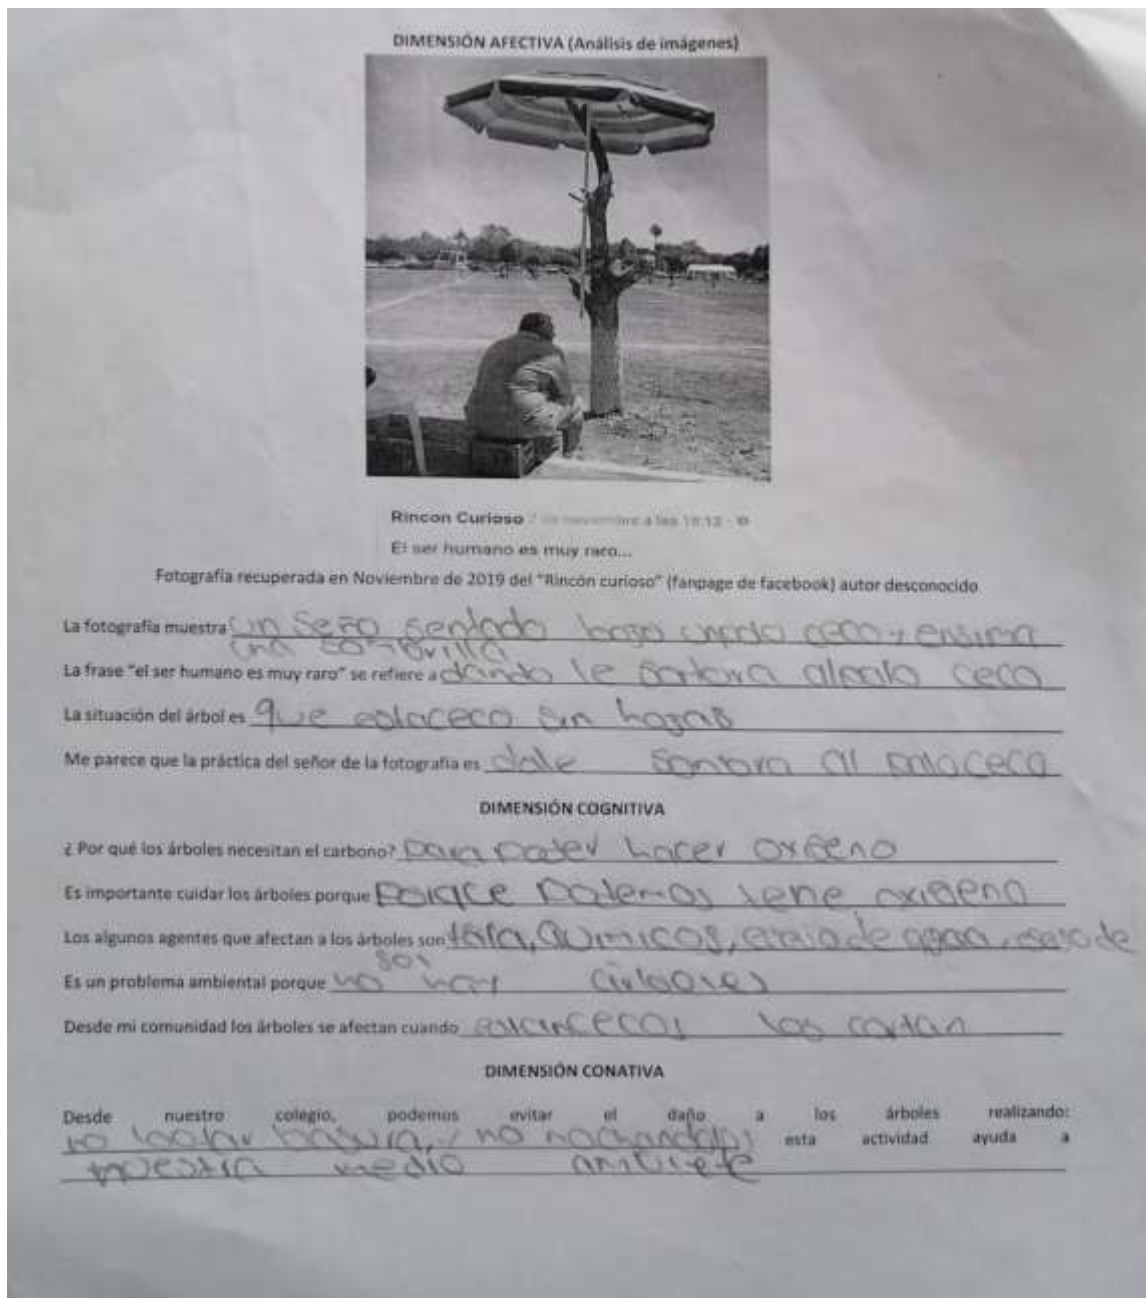 DIMENSIÓN AFECTIVA (Análisis de imágenes)
Rincon Curioso 7 de noviembre a las 18:12 ·
El ser humano es muy raro...
Fotografía recuperada en Noviembre de 2019 del "Rincón curioso" (fanpage de facebook) autor desconocido
La fotografía muestra un seño sentado bajo un palo ceco y ensima
una sombrilla
La frase "el ser humano es muy raro" se refiere a dando le sombra al palo ceco
La situación del árbol es que estaceco sin hojas
Me parece que la práctica del señor de la fotografía es dale sombra al paloceco
DIMENSIÓN COGNITIVA
¿ Por qué los árboles necesitan el carbono? para poder hacer oxigeno
Es importante cuidar los árboles porque porqce podemos tene oxigeno
Los algunos agentes que afectan a los árboles son tala, Quimicos, de agua, de
sol
Es un problema ambiental porque no hay
Desde mi comunidad los árboles se afectan cuando los cortan
DIMENSIÓN CONATIVA
Desde nuestro colegio, podemos evitar el daño a los árboles realizando:
no basura, y no esta actividad ayuda a
medio